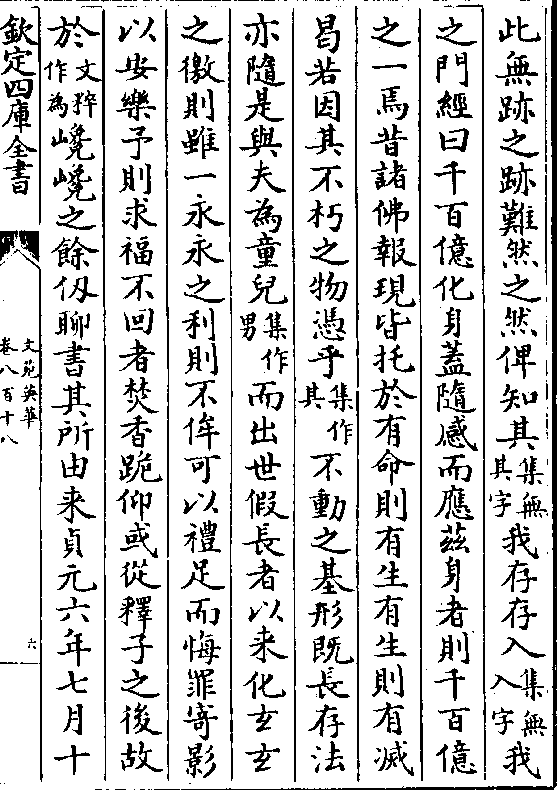 此無跡之跡難然之然俾知其集無其字我存存入集無入字我
之門經曰千百億化身蓋隨感而應茲身者則千百億
之一焉昔諸佛報現皆托於有命則有生有生則有滅
曷若因其不朽之物憑乎集作其不動之基形既長存法
亦隨是與夫為童兒集作男而出世假長者以来化玄玄
之徼則雖一永永之利則不侔可以禮足而悔罪寄影
以安樂予則求福不回者焚香跪仰或從釋子之後故
於文粹作為巉巉之餘仭聊書其所由来貞元六年七月十
欽定四庫全書
文苑英華
卷八百十八
六